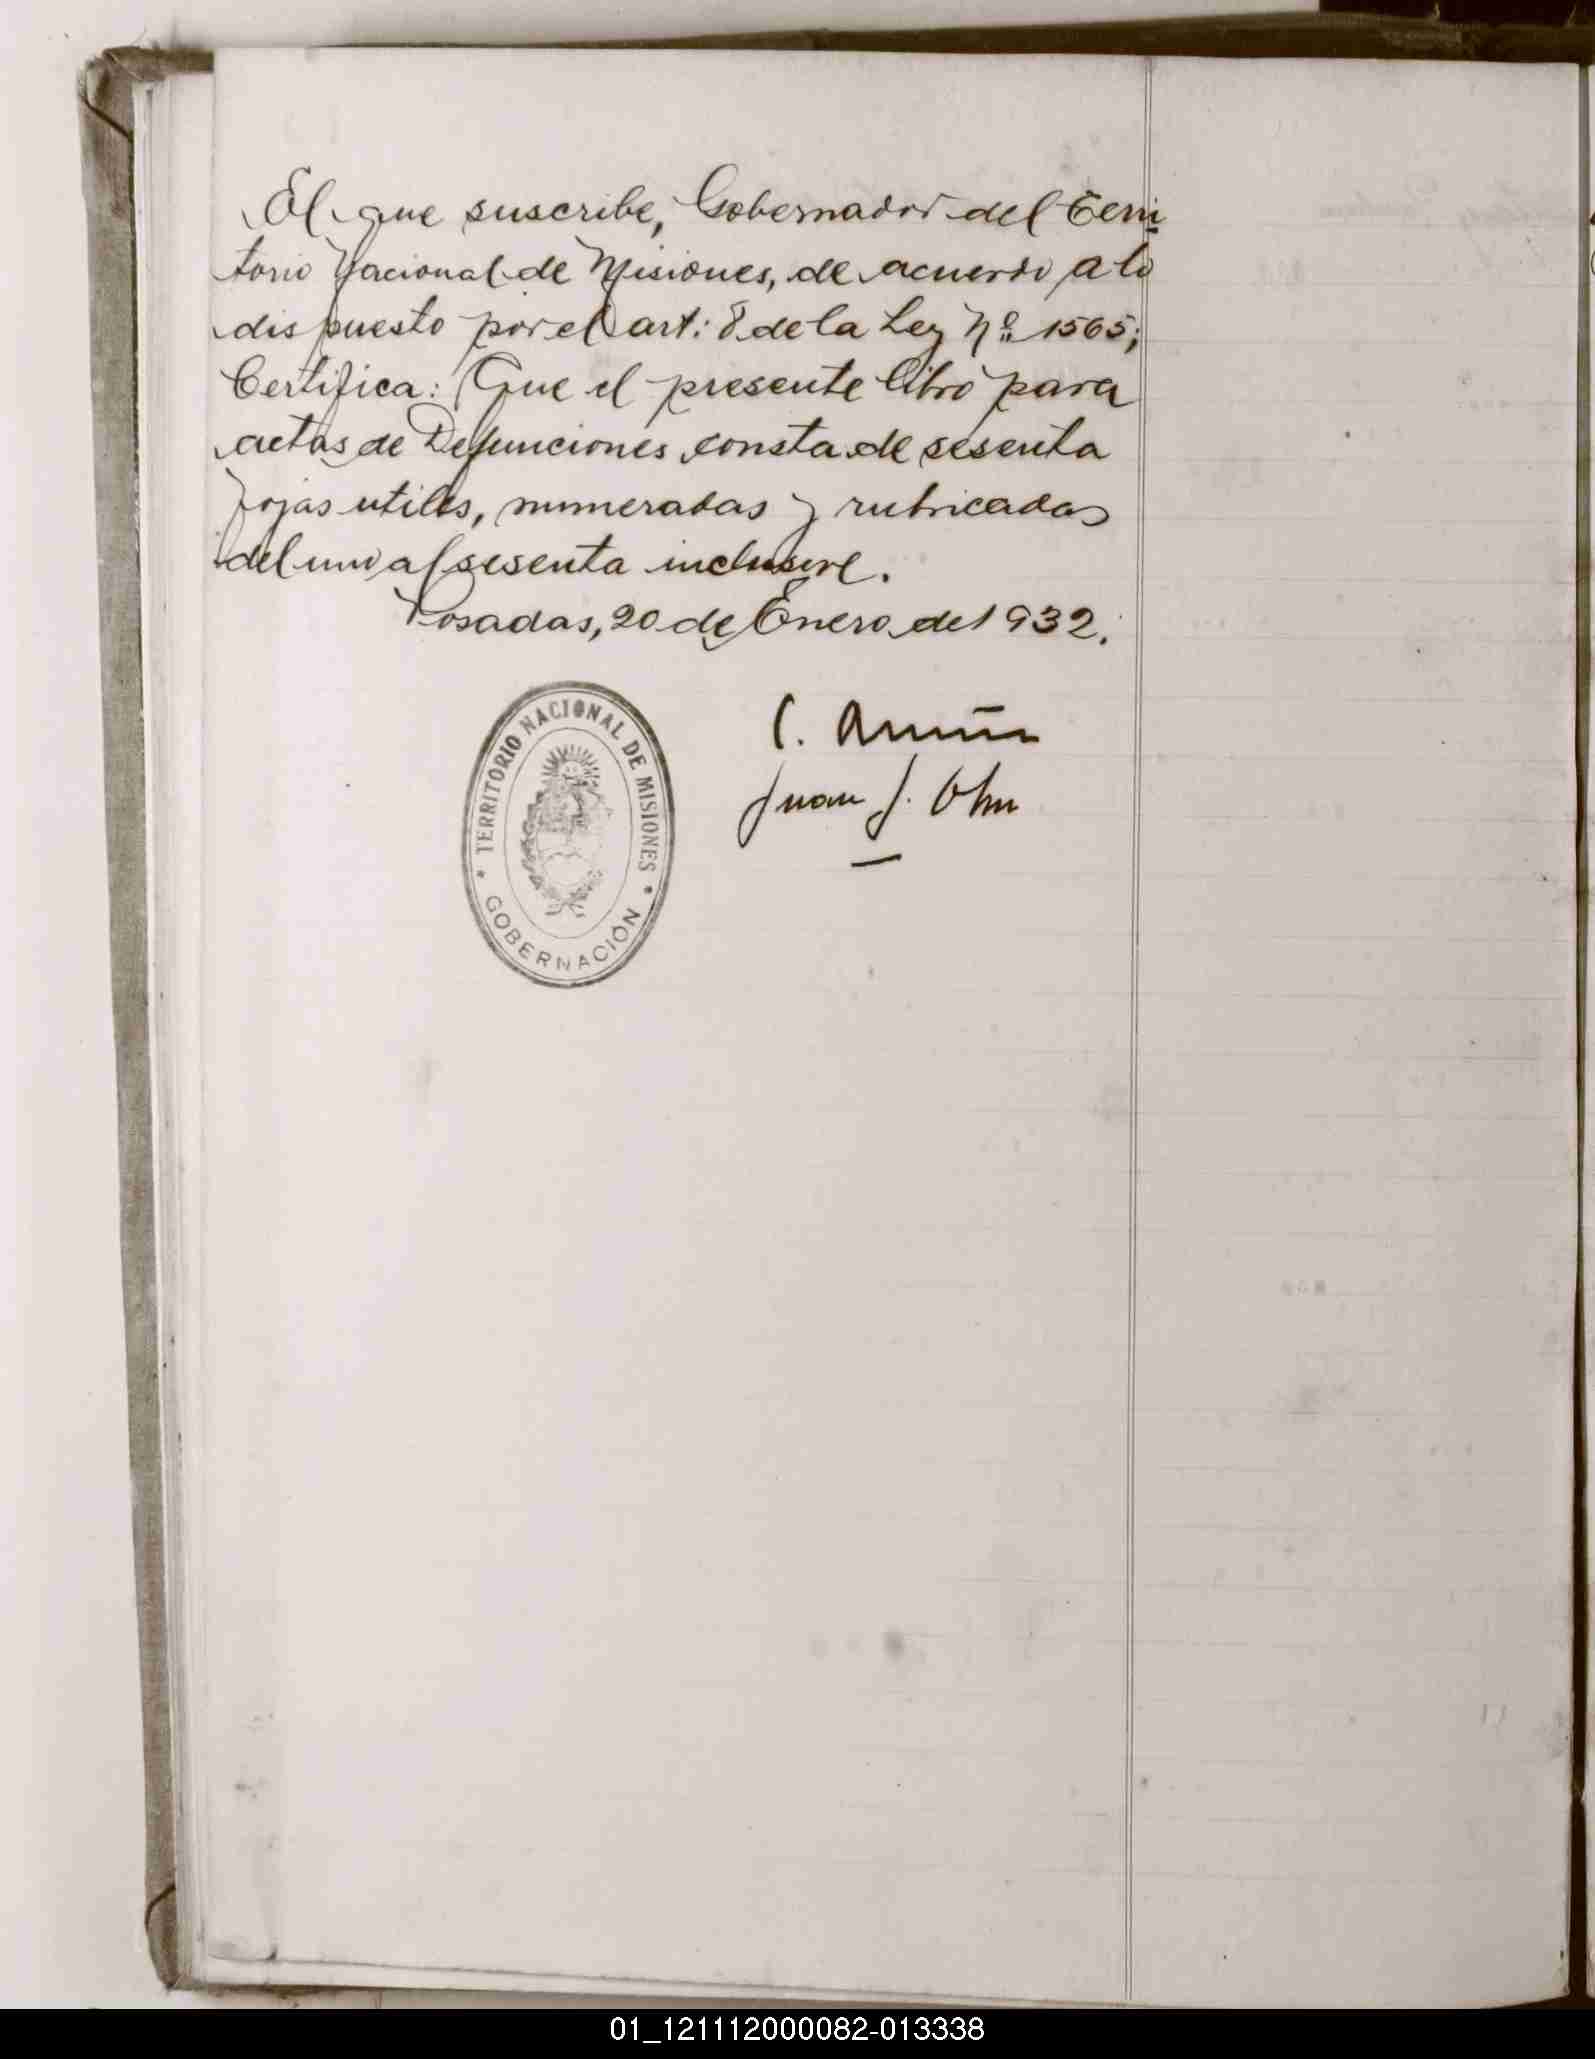 El que suscribe, Gobernador del Terri
torio Nacional de Misiones, de acuerdo a lo
dispuesto por el art: 8 de la Ley Nº 1565;
Certifica: Que el presente libro para
actas de Defunciones consta de sesenta
fojas utiles, numeradas y rubricadas
del uno al sesenta inclusive.
Posadas, 20 de Enero de 1932.
TERRITORIO NACIONAL DE MISIONES
GOBERNACIÓN
C. 
Juan J.
01_121112000082-013338